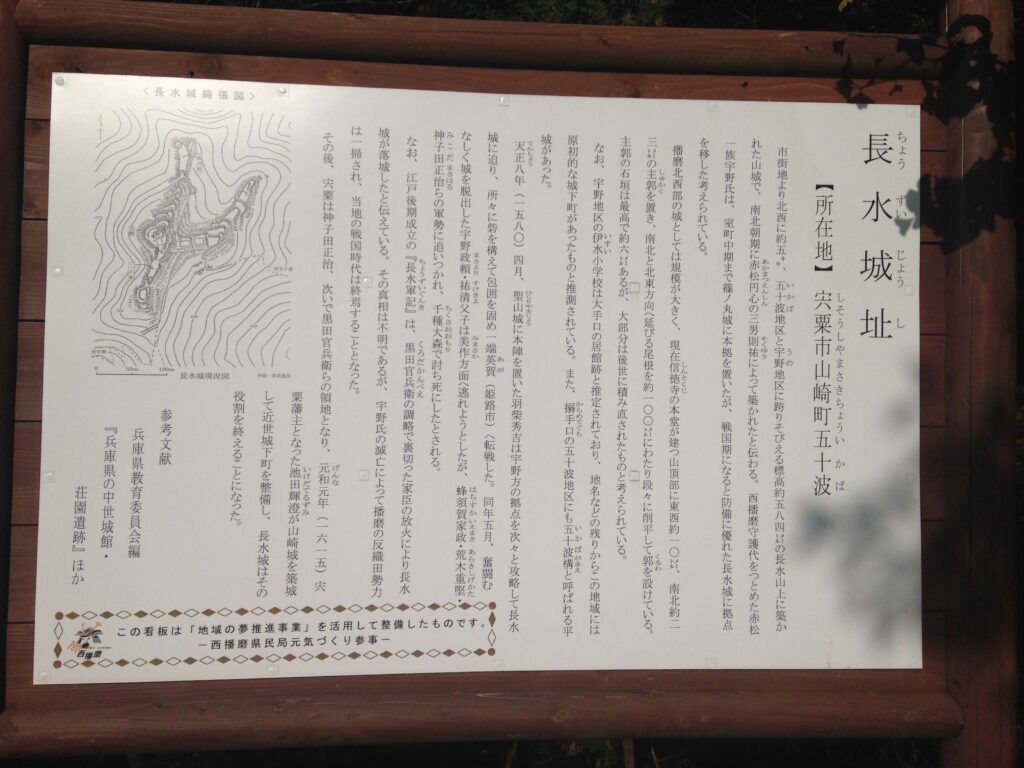 長水城址
ちょう すい じょう し
【所在地】宍粟市山崎町五十波
しそうしやまさきちょういかば
市街地より北西に約五㌔、五十波地区と宇野地区に跨りそびえる標高約五八四㍍の長水山上に築か
れた山城で、南北朝期に赤松円心の三男則祐によって築かれたと伝わる。西播磨守護代をつとめた赤松
一族宇野氏は、室町中期まで篠ノ丸城に本拠を置いたが、戦国期になると防備に優れた長水城に拠点
を移した考えられている。
播磨北西部の城としては規模が大きく、現在信徳寺の本堂が建つ山頂部に東西約一〇㍍、南北約二
三㍍の主郭を置き、南北と北東方向へ延びる尾根を約一〇〇㍍にわたり段々に削平して郭を設けている。
主郭の石垣は最高で約六㍍あるが、大部分は後世に積み直されたものと考えられている。
なお、宇野地区の伊水小学校は大手口の居館跡と推定されており、地名などの残りからこの地域には
原初的な城下町があったものと推測されている。また、搦手口の五十波地区にも五十波構と呼ばれる平
城があった。
天正八年(一五八〇)四月、聖山城に本陣を置いた羽柴秀吉は宇野方の拠点を次々と攻略して長水
城に迫り、所々に砦を構えて包囲を固め一端英賀(姫路市)へ転戦した。同年五月、奮闘む
なしく城を脱出した宇野政頼・祐清父子は美作方面へ逃れようとしたが、蜂須賀家政・荒木重堅・
神子田正治らの軍勢に追いつかれ、千種大森で討ち死にしたとされる。
なお、江戸後期成立の『長水軍記』は、黒田官兵衛の調略で裏切った家臣の放火により長水
城が落城したと伝えている。その真相は不明であるが、宇野氏の滅亡によって播磨の反織田勢力
は一掃され、当地の戦国時代は終焉することとなった。
その後、宍粟は神子田正治、次いで黒田官兵衛らの領地となり、元和元年(一六一五)宍
粟藩主となった池田輝澄が山崎城を築城
して近世城下町を整備し、長水城はその
役割を終えることになった。
参考文献
兵庫県教育委員会編
『兵庫県の中世城館・
荘園遺跡』ほか
〈長水城縄張図〉
0 50m 100m
長水城現況図
この看板は「地域の夢推進事業」を活用して整備したものです。
－西播磨県民局元気づくり参事－
西播磨